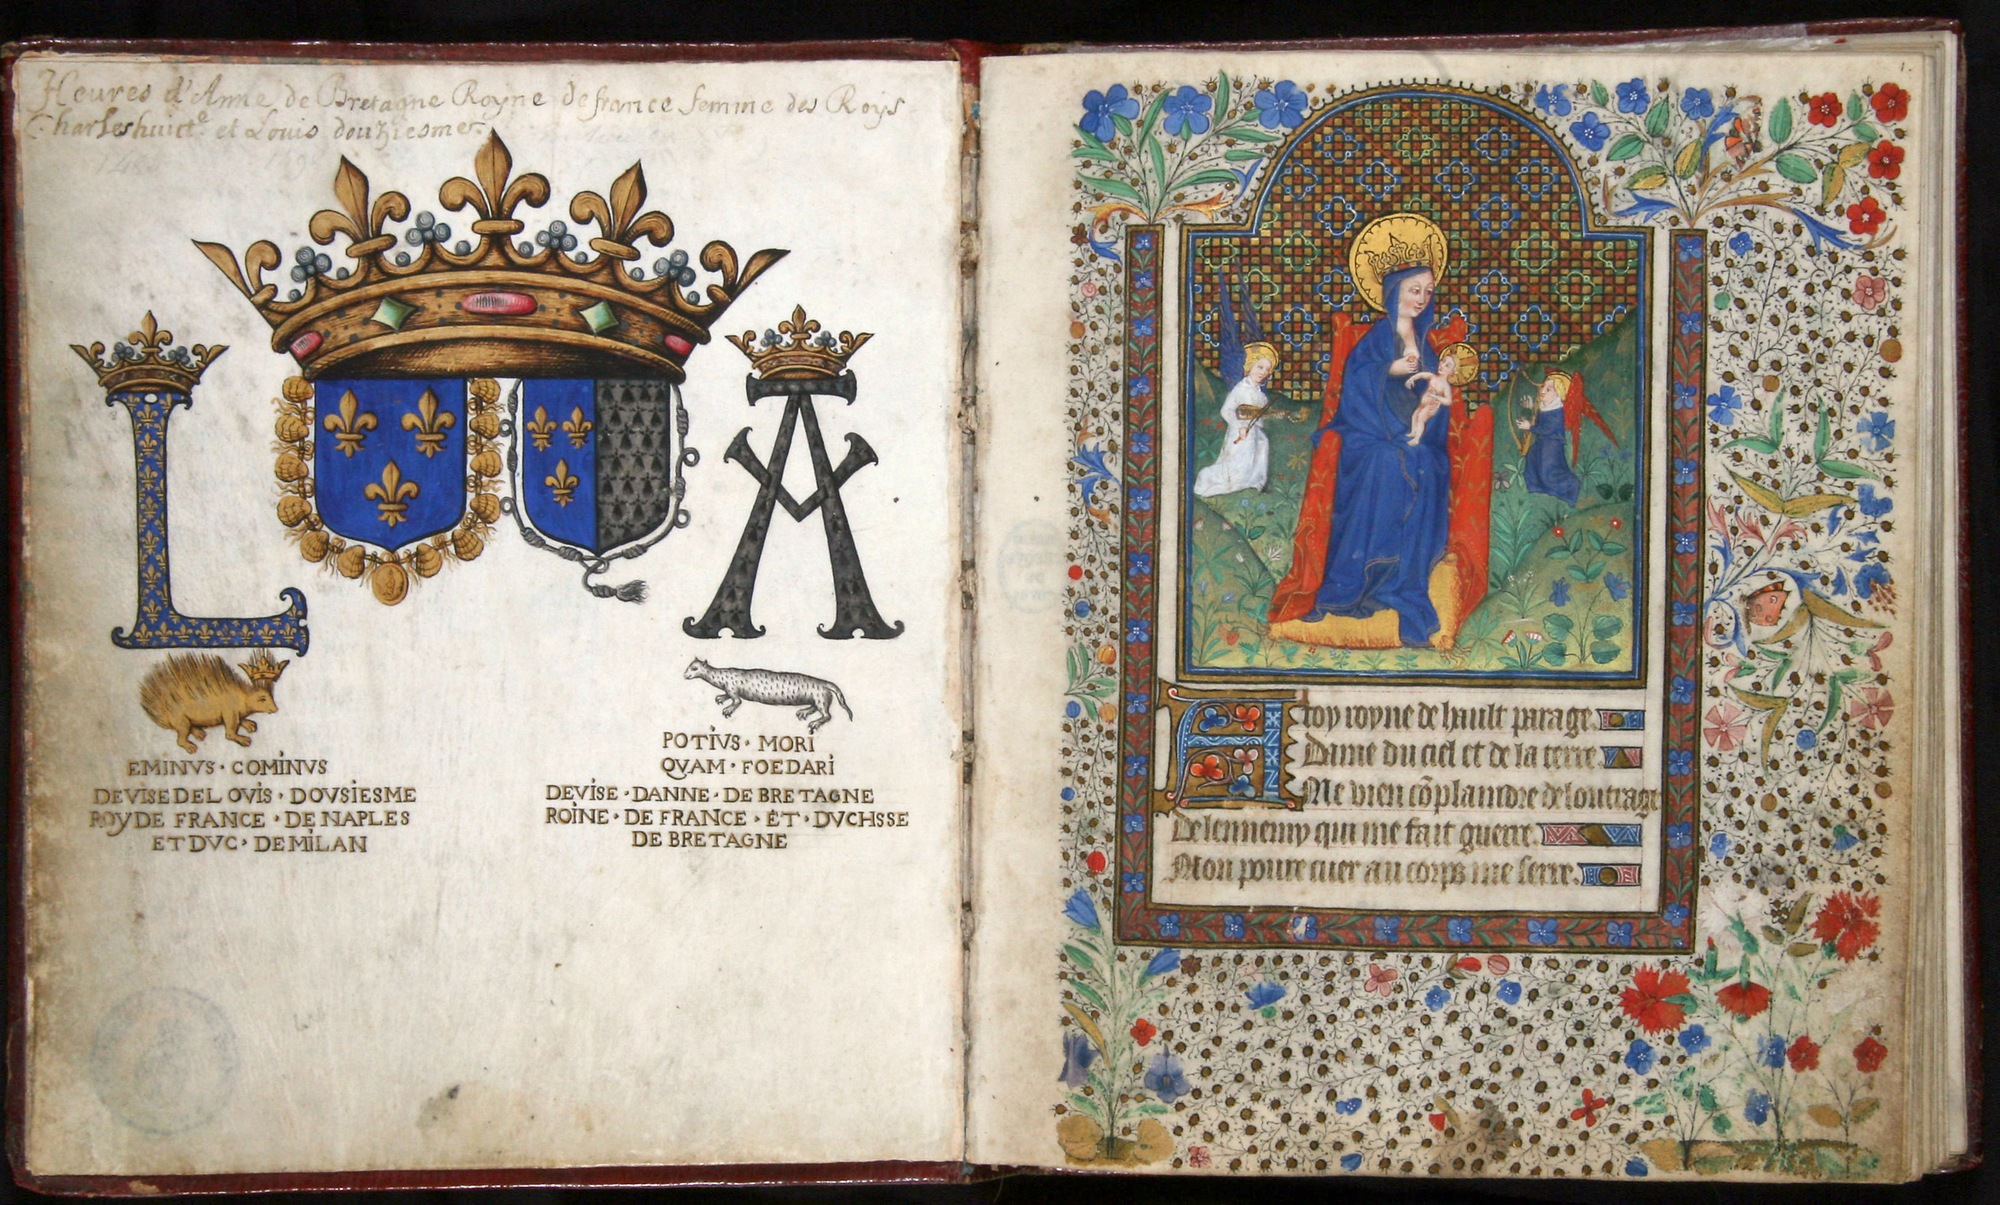 Heures d'Anne de Bretagne Royne de france femme des Roys
Charles huict.e et Louis douziesme.
L
A
EMINVS · COMINVS
DEVISE DEL OVIS · DOVSIESME
ROY DE FRANCE · DE NAPLES
ET DVC · DE MILAN
POTIVS · MORI
QVAM · FOEDARI
DEVISE · DANNE · DE BRETAGNE
ROINE · DE FRANCE · ET · DVCHSSE
DE BRETAGNE
1.
A toy royne de hault parage.
Dame du ciel et de la terre.
Me vien cõplaindre de loutrage
De lennemy qui me fait guerre.
Mon poure cuer au corps me serre.